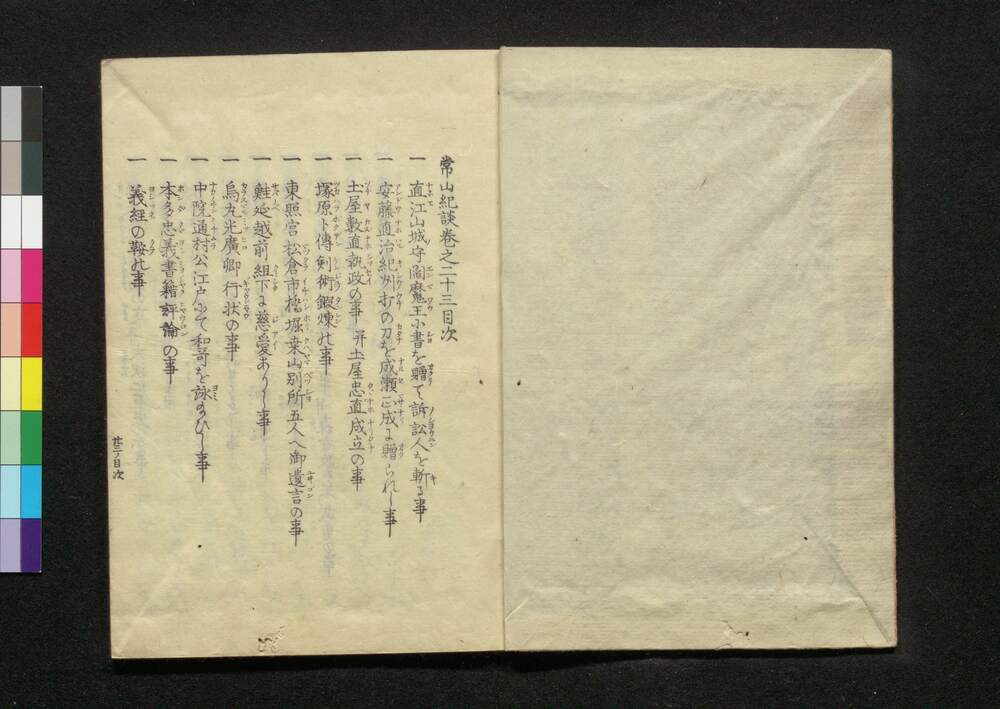 常山紀談巻之二十三目次
一 直江山城守閻魔王に書を贈て訴訟人を斬る事
一 安藤直治紀州打の刀を成瀬正成に贈られし事
一 土屋數直執政の事 并土屋忠直成立の事
一 塚原卜傳劍術鍛煉の事
一 東照宮松倉市橋堀桑山別所五人へ御遺言の事
一 鮭延越前組下に慈愛ありし事
一 烏丸光廣卿行状の事
一 中院通村公江戸にて和哥を詠給ひし事
一 本多忠義書籍評論の事
一 義經の鞍の事
廿三ノ目次